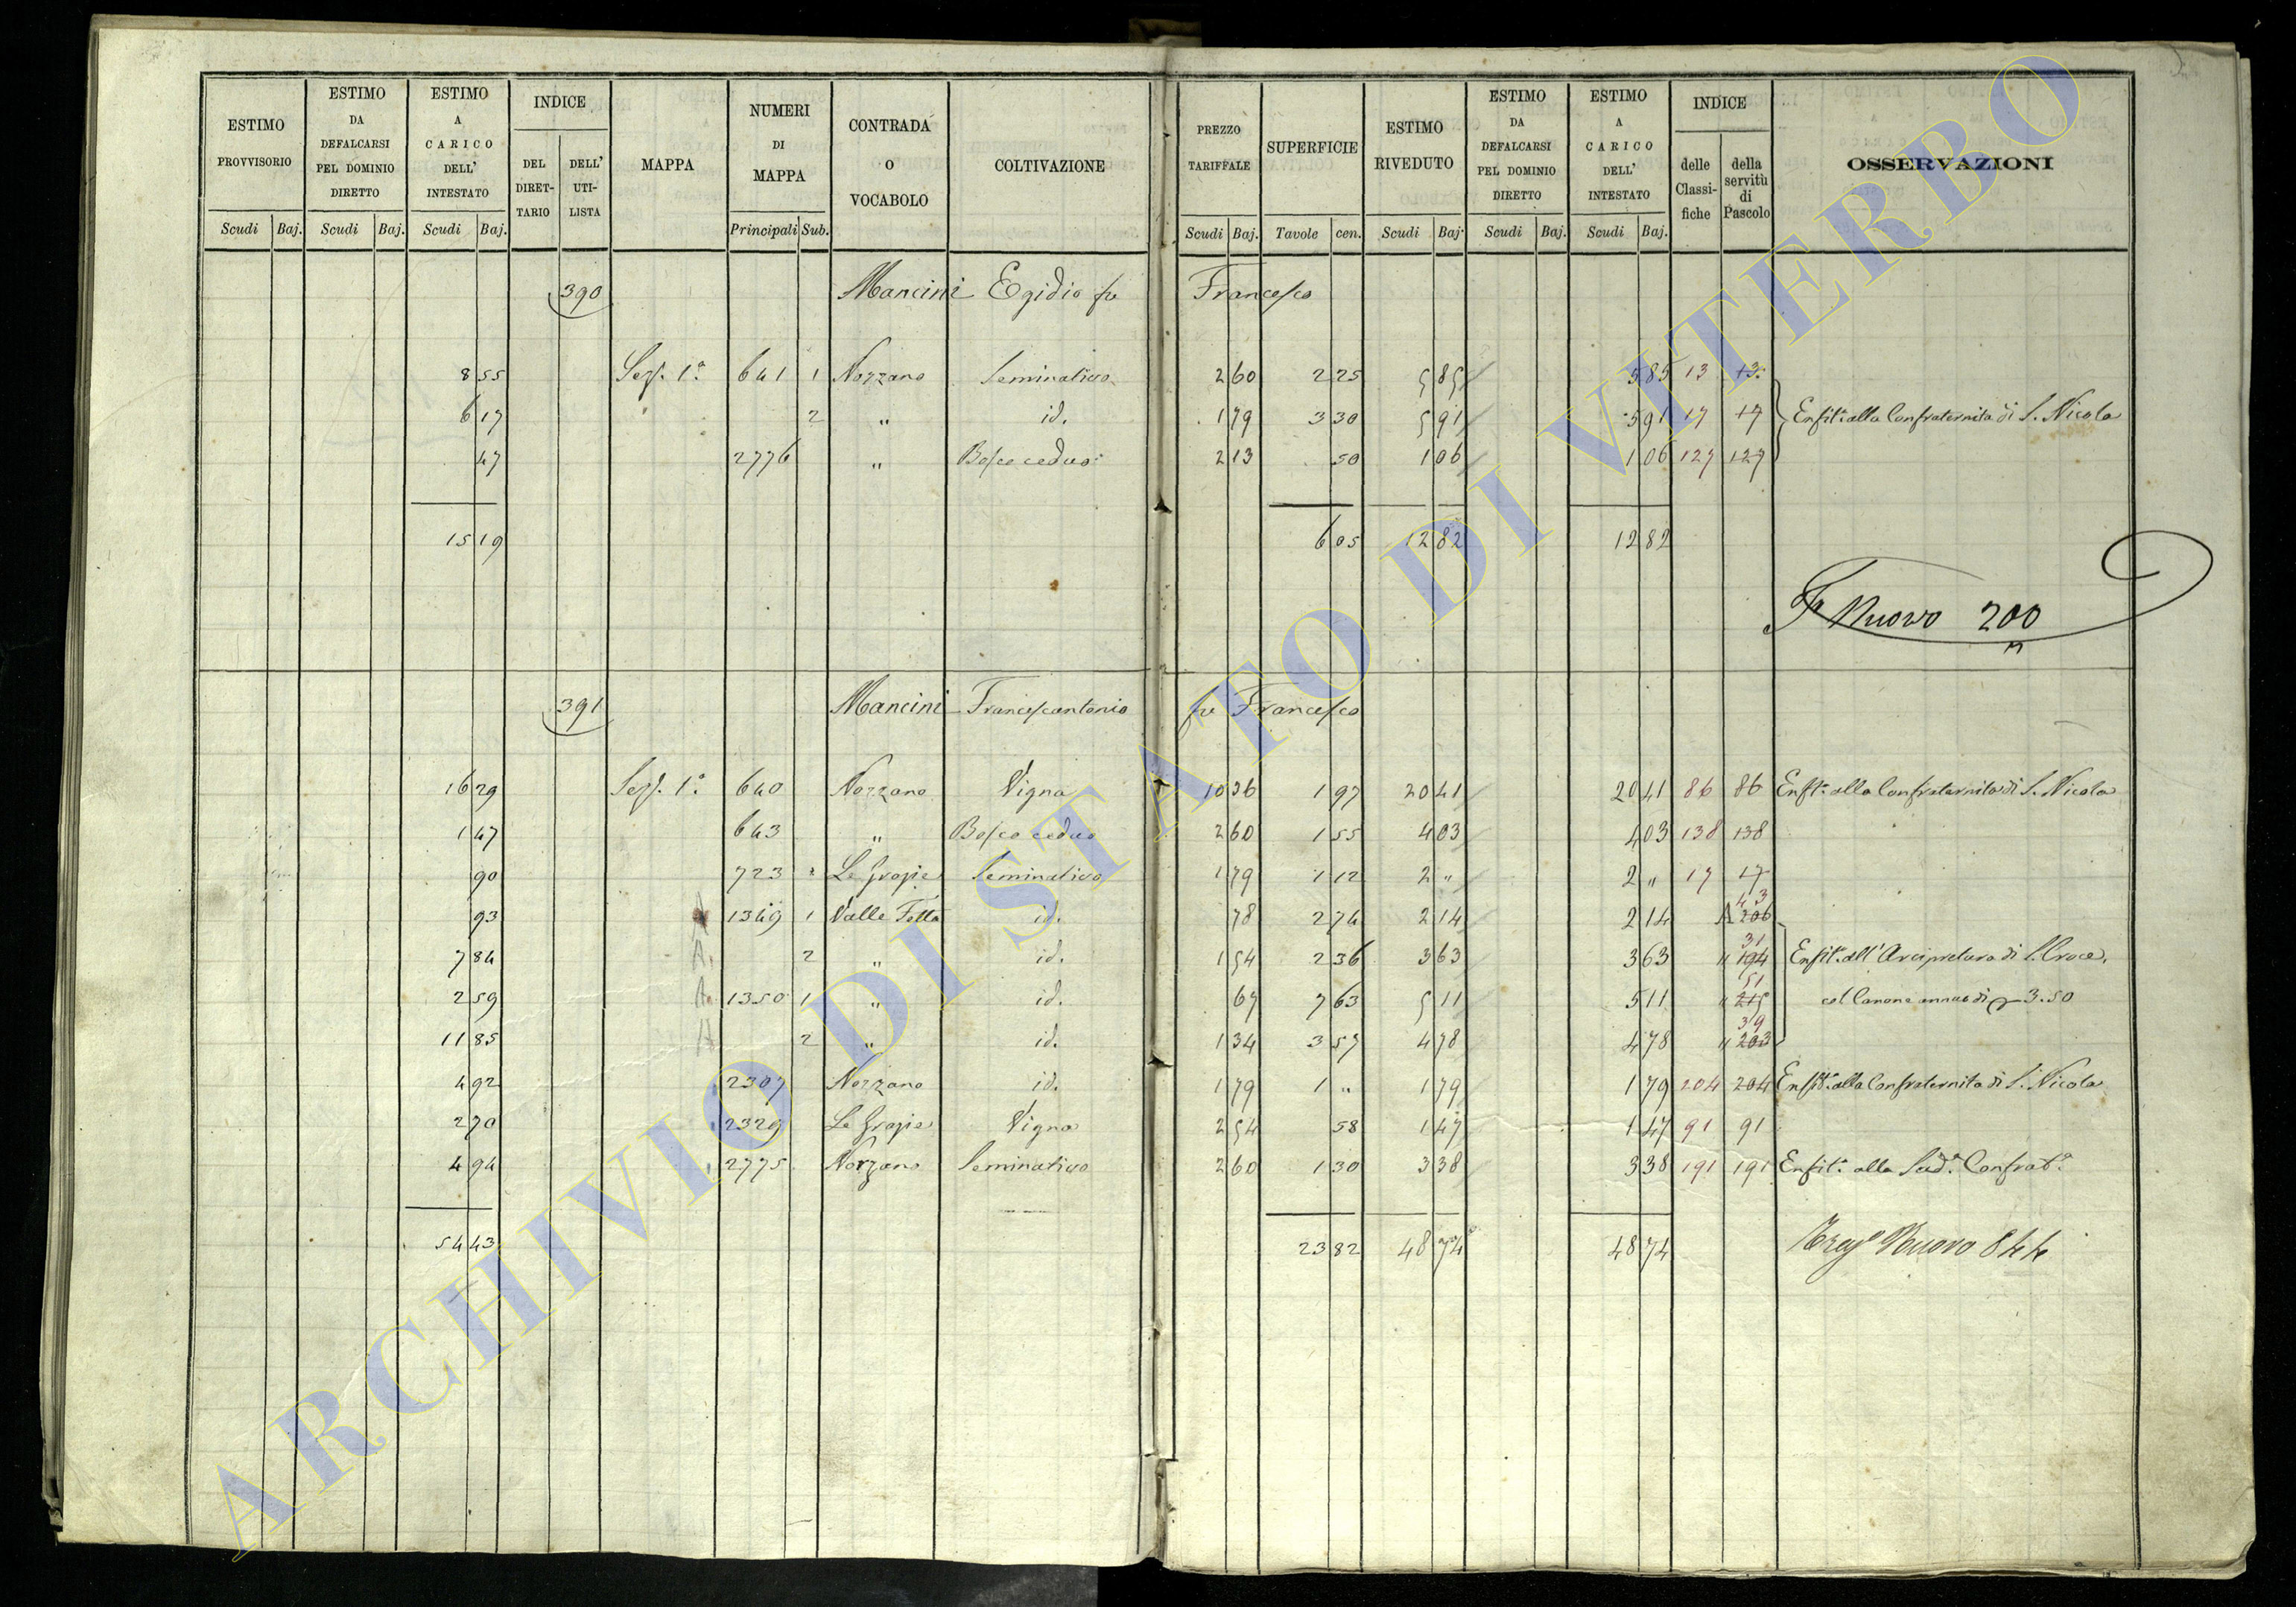 ESTIMO PROVVISORIO | ESTIMO DA DEFALCARSI PEL DOMINIO DIRETTO | ESTIMO A CARICO DELL' INTESTATO | INDICE | MAPPA | NUMERI DI MAPPA | CONTRADA O VOCABOLO | COLTIVAZIONE | PREZZO TARIFFALE | SUPERFICIE | ESTIMO RIVEDUTO | ESTIMO DA DEFALCARSI PEL DOMINIO DIRETTO | ESTIMO A CARICO DELL' INTESTATO | INDICE | OSSERVAZIONI
DEL DIRETTARIO | DELL' UTILISTA | delle Classifiche | della servitù di Pascolo
Scudi Baj. | Scudi Baj. | Scudi Baj. | Principali Sub. | Scudi Baj. | Tavole cen. | Scudi Baj. | Scudi Baj. | Scudi Baj.
390 Mancini Egidio fu Francesco
8 55 Sez. 1a 641 1 Nozzano Seminativo 2 60 2 25 5 85 5 85 13 13
6 17 2 " id. 1 79 3 30 5 91 5 91 17 17 Enfit. alla Confraternita di S. Nicola
47 2776 " Bosco ceduo 2 13 50 1 06 1 06 127 127
15 19 6 05 12 82 12 82
Nuovo 200
391 Mancini Francescantonio fu Francesco
16 29 Sez. 1a 640 Nozzano Vigna 10 36 1 97 20 41 20 41 86 86 Enfit. alla Confraternita di S. Nicola
1 47 643 " Bosco ceduo 2 60 1 55 4 03 4 03 138 138
90 723 2 Le Grazie Seminativo 1 79 1 12 2 " 2 " 17 17
93 1349 1 Valle id. 78 2 74 2 14 2 14 43 A 206
7 84 A. 2 " id. 1 54 2 36 3 63 3 63 31 " 194 Enfit. all' Arcipretura di S. Croce,
2 59 A. 1350 1 " id. 67 7 63 5 11 5 11 51 " 215 col Canone annuo di 3.50
11 85 A 2 " id. 1 34 3 57 4 78 4 78 39 " 203
4 92 2307 Nozzano id. 1 79 1 " 1 79 1 79 204 204 Enfit. alla Confraternita di S. Nicola
2 70 2329 Le Grazie Vigna 2 54 58 1 47 1 47 91 91
4 94 2775 Nozzano Seminativo 2 60 1 30 3 38 3 38 191 191 Enfit. alla Sud.a Confrat.a
54 43 23 82 48 74 48 74 Nuovo 844
ARCHIVIO DI STATO DI VITERBO